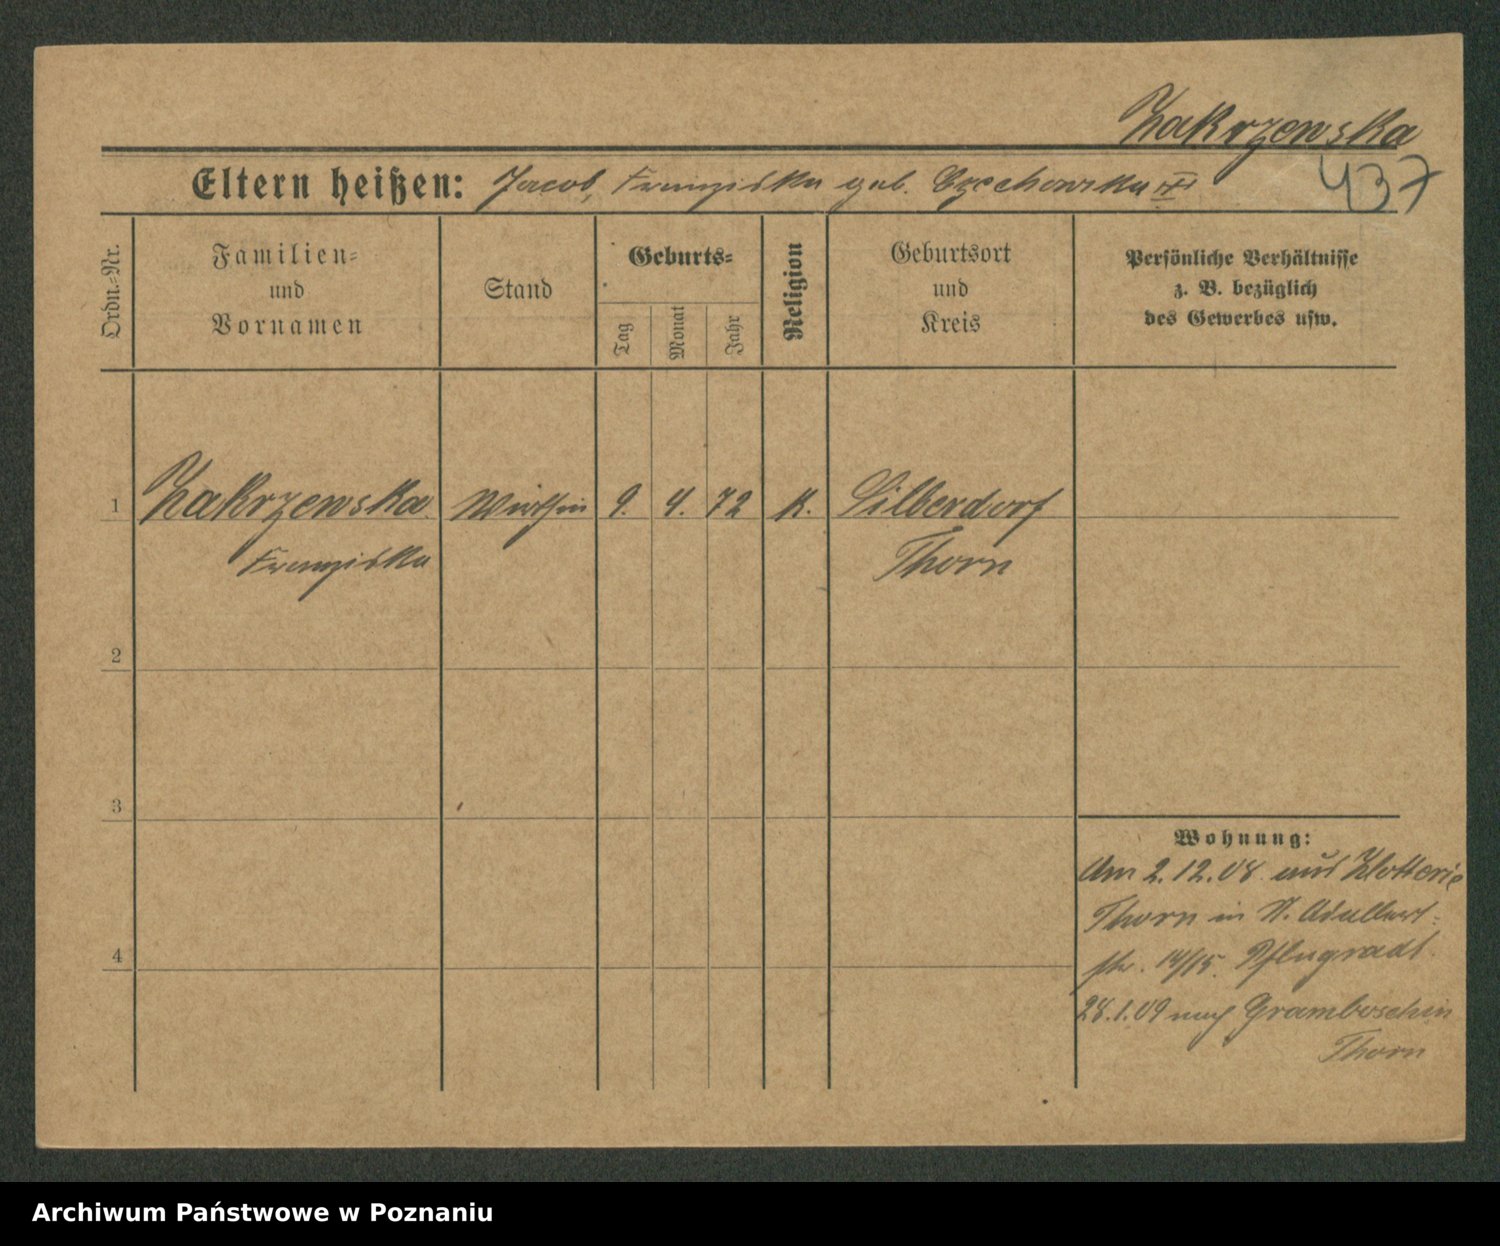 Zakrzewska
437
Eltern heißen: Jacob, Franziska geb. Czechowska
Ordn.-Nr.
Familien-
und
Vornamen
Stand
Geburts-
Tag
Monat
Jahr
Religion
Geburtsort
und
Kreis
Persönliche Verhältnisse
z. B. bezüglich
des Gewerbes usw.
1 Zakrzewska Wirthin 9. 4. 72 K. Silberdorf
Franziska Thorn
2
3
4
Wohnung:
Am 2.12.08 aus Zlotterie
Thorn in St. Adalbert-
str. 14/15. Pflugradt
28.1.09 nach Gramboschin
Thorn
Archiwum Państwowe w Poznaniu